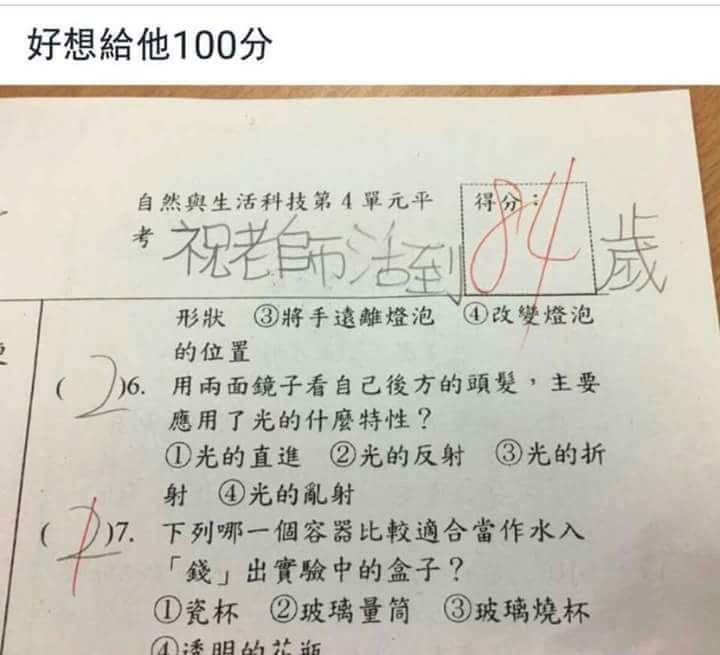 好想給他100分
自然與生活科技第4單元平 得分：
考 祝老師活到84歲
形狀 ③將手遠離燈泡 ④改變燈泡
的位置
( 2 )6. 用兩面鏡子看自己後方的頭髮，主要
應用了光的什麼特性？
①光的直進 ②光的反射 ③光的折
射 ④光的亂射
( 2 )7. 下列哪一個容器比較適合當作水入
「錢」出實驗中的盒子？
①瓷杯 ②玻璃量筒 ③玻璃燒杯
④透明的花瓶